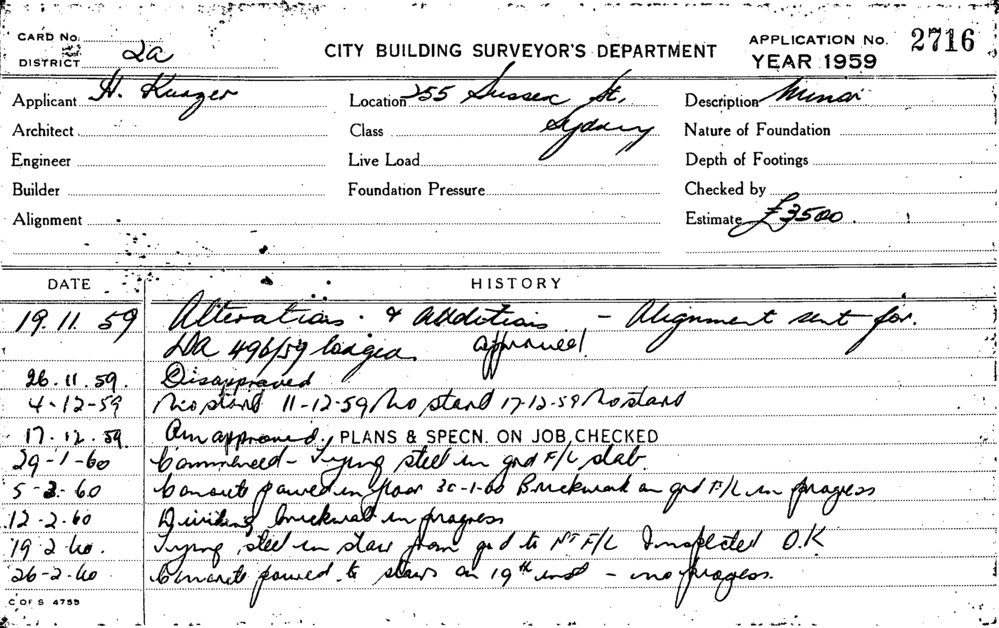 CARD No.
DISTRICT 2a
CITY BUILDING SURVEYOR'S DEPARTMENT
APPLICATION No. 2716
YEAR 1959
Applicant H. Kunzer
Location 255 Sussex St,
Description Minor
Architect
Class Sydney
Nature of Foundation
Engineer
Live Load
Depth of Footings
Builder
Foundation Pressure
Checked by
Alignment
Estimate £3500
DATE HISTORY
19.11.59 Alterations & additions - Alignment sent for.
DA 496/59 lodged approved
26.11.59. Disapproved
4-12-59 No start 11-12-59 No start 17-12-59 No start
17.12.59. approved. PLANS & SPECN. ON JOB CHECKED
29-1-60 Commenced - Tying steel in grd F/L slab.
5-2-60 Concrete poured in floor 30-1-60 Brickwork on grd F/L in progress
12-2-60 Dividing brickwall in progress
19-2-60. Tying steel in stair from grd to 1ST F/L Inspected O.K
26-2-60 Concrete poured to stairs on 19th inst - no progress.
C OF S 4755